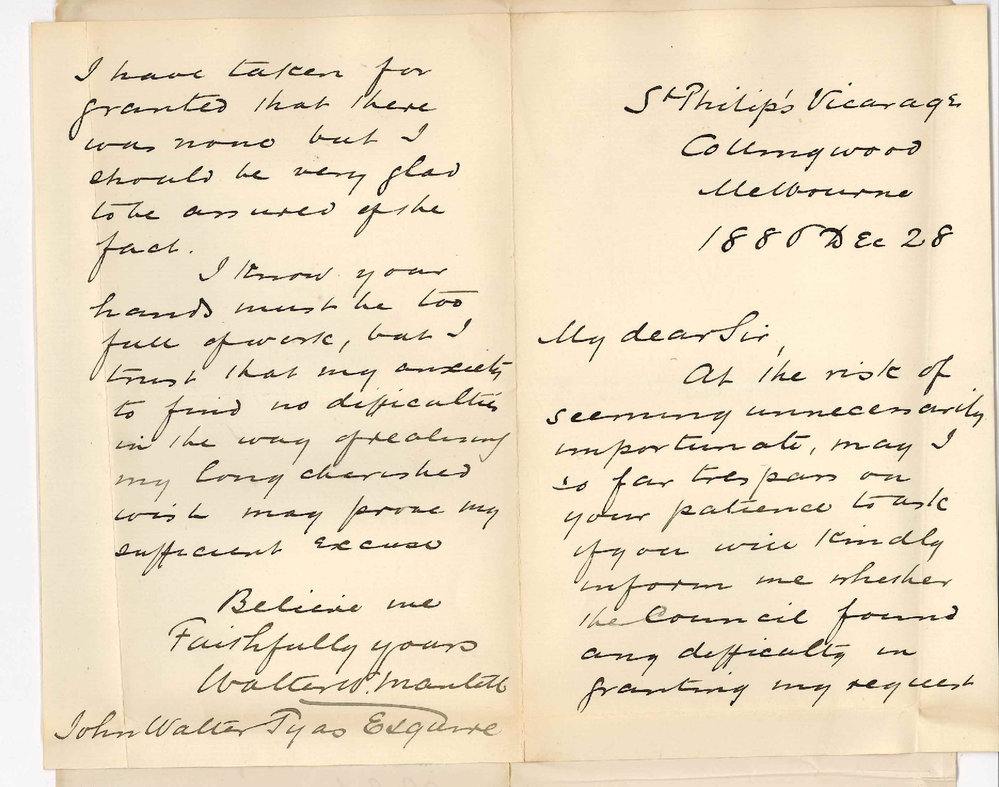 St Philip's Vicarage
Collingwood
Melbourne
1886 Dec 28
My dear Sir,
At the risk of
seeming unnecessarily
importunate, may I
so far trespass on
your patience to ask
if you will kindly
inform me whether
the Council found
any difficulty in
granting my request
I have taken for
granted that there
was none but I
should be very glad
to be assured of the
fact.
I know your
hands must be too
full of work, but I
trust that my anxiety
to find no difficulties
in the way of realising
my long cherished
wish may prove my
sufficient excuse
Believe me
Faithfully yours
Walter W.
John Walter Tyas Esquire